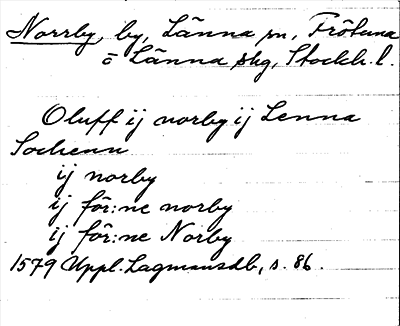 Norrby, by, Länna sn, Frötuna
o Länna skg, Stockh. l.
Oluff ij norby ij Lenna
Sochenn
ij norby
ij för:ne norby
ij för:ne Norby
1579 Uppl. Lagmansdb, s. 86.